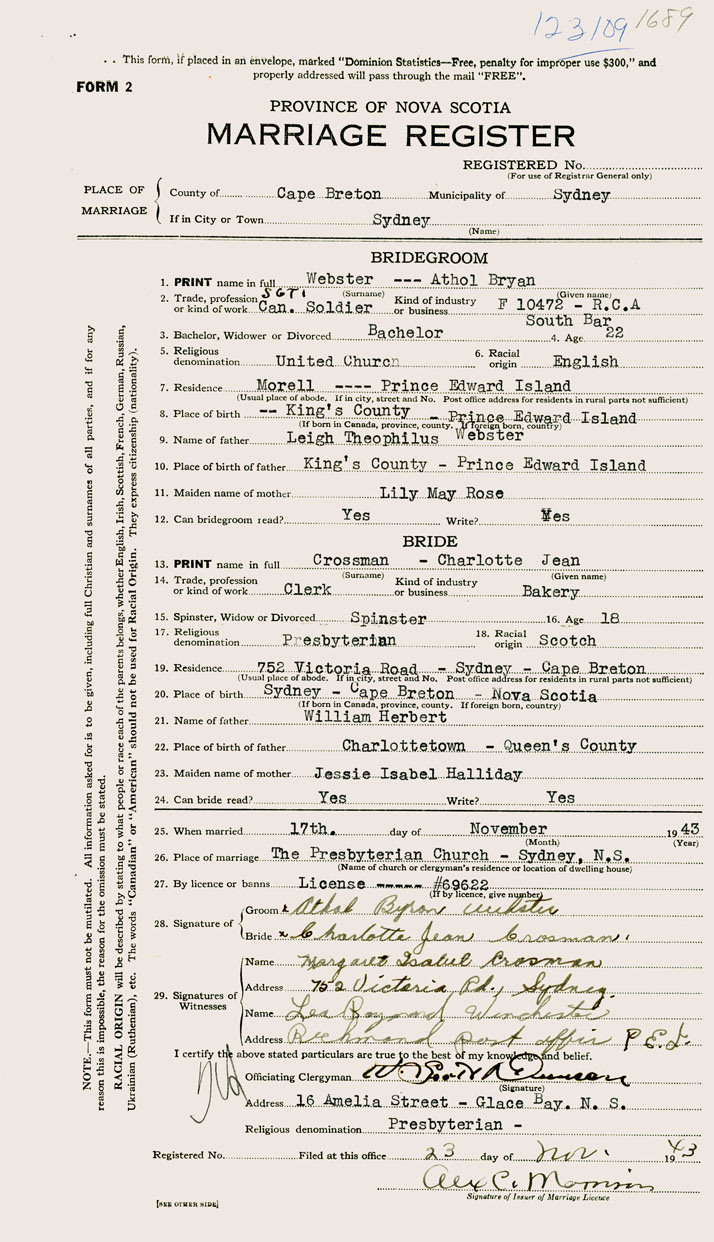 123109 1689
This form, if placed in an envelope, marked "Dominion Statistics—Free, penalty for improper use $300," and
properly addressed will pass through the mail "FREE".
FORM 2
PROVINCE OF NOVA SCOTIA
MARRIAGE REGISTER
REGISTERED No.
(For use of Registrar General only)
PLACE OF MARRIAGE
County of Cape Breton Municipality of Sydney
If in City or Town Sydney
(Name)
BRIDEGROOM
1. PRINT name in full Webster --- Athol Bryan
(Surname) (Given name)
SGT.
2. Trade, profession or kind of work Can. Soldier Kind of industry or business F 10472 - R.C.A
South Bar
3. Bachelor, Widower or Divorced Bachelor 4. Age 22
5. Religious denomination United Church 6. Racial origin English
7. Residence Morell ---- Prince Edward Island
(Usual place of abode. If in city, street and No. Post office address for residents in rural parts not sufficient)
8. Place of birth -- King's County - Prince Edward Island
(If born in Canada, province, county. If foreign born, country)
9. Name of father Leigh Theophilus Webster
10. Place of birth of father King's County - Prince Edward Island
11. Maiden name of mother Lily May Rose
12. Can bridegroom read? Yes Write? Yes
BRIDE
13. PRINT name in full Crossman - Charlotte Jean
(Surname) (Given name)
14. Trade, profession or kind of work Clerk Kind of industry or business Bakery
15. Spinster, Widow or Divorced Spinster 16. Age 18
17. Religious denomination Presbyterian 18. Racial origin Scotch
19. Residence 752 Victoria Road - Sydney - Cape Breton
(Usual place of abode. If in city, street and No. Post office address for residents in rural parts not sufficient)
20. Place of birth Sydney - Cape Breton - Nova Scotia
(If born in Canada, province, county. If foreign born, country)
21. Name of father William Herbert
22. Place of birth of father Charlottetown - Queen's County
23. Maiden name of mother Jessie Isabel Halliday
24. Can bride read? Yes Write? Yes
25. When married 17th. day of November 1943
(Month) (Year)
26. Place of marriage The Presbyterian Church - Sydney, N.S.
(Name of church or clergyman's residence or location of dwelling house)
27. By licence or banns License ----- #69622
(If by licence, give number)
28. Signature of
Groom x Athol Byron Webster
Bride x Charlotte Jean Crosman.
29. Signatures of Witnesses
Name Margaret Isabel Crosman
Address 752 Victoria Rd., Sydney.
Name Leo Winchester
Address Richmond post office P.E.I.
I certify the above stated particulars are true to the best of my knowledge and belief.
Officiating Clergyman
(Signature)
Address 16 Amelia Street - Glace Bay. N. S.
Religious denomination Presbyterian -
Registered No. Filed at this office 23 day of Nov. 1943
Alex C. Morrison
Signature of Issuer of Marriage Licence
[SEE OTHER SIDE]
NOTE.—This form must not be mutilated. All information asked for is to be given, including full Christian and surnames of all parties, and if for any
reason this is impossible, the reason for the omission must be stated.
RACIAL ORIGIN will be described by stating to what people or race each of the parents belongs, whether English, Irish, Scottish, French, German, Russian,
Ukrainian (Ruthenian), etc. The words "Canadian" or "American" should not be used for Racial Origin. They express citizenship (nationality).